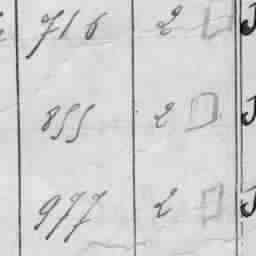 716 2 J
855 2 J
977 2 J